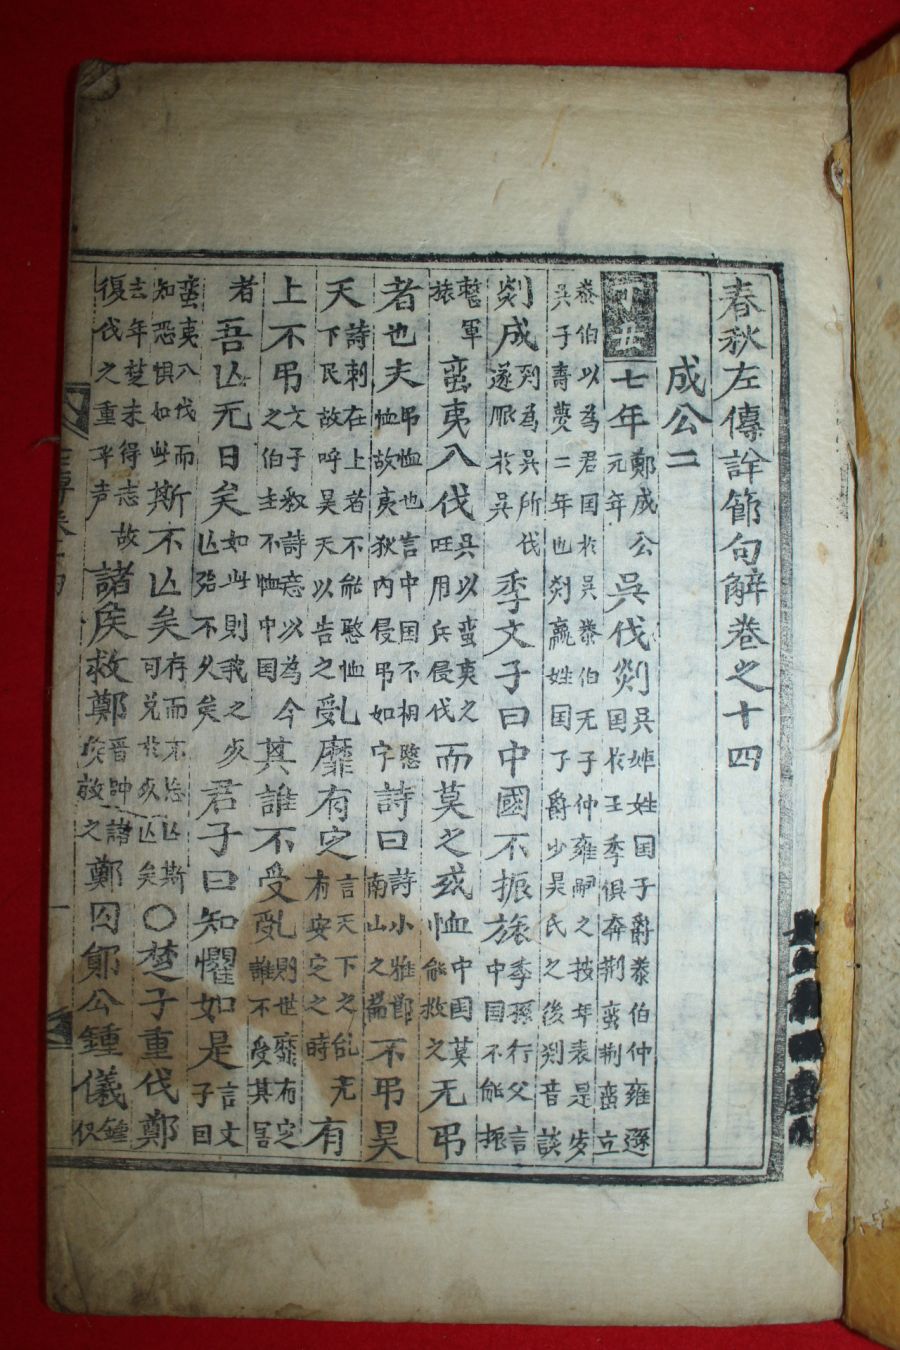 春秋左傳詳節句解卷之十四
成公二
丁丑七年鄭成公元年吳伐郯吳姬姓囯子爵泰伯仲雍遜囯扵王季俱奔荆蛮荆蛮立
泰伯以為君囯扵吳泰伯无子仲雍嗣之按年表是岁吳子壽夢二年也郯嬴姓囯子爵少昊氏之後郯音談
郯成郯為吳所伐遂服扵吳季文子曰中國不振旅季孫行父言中囯不能振
整軍旅蛮夷入伐吳以蛮夷之旺用兵侵伐而莫之或恤中囯莫能救之无弔
者也夫弔恤也言中囯不相愍恤故夷狄内侵弔如字詩曰詩小雅節南山之篇不弔昊
天詩刺在上者不能愍恤下民故呼昊天以告之乱靡有定言天下之乱无有安定之時有
上不弔文子叙詩意以為今之伯主不恤中囯其誰不受乱則世靡有定誰不受其害
者吾亾无日矣如此則我之亾殆不久矣君子曰知懼如是言文子曰
蛮夷入伐而知恐惧如此斯不亾矣存而不忘亾斯可免扵亾矣○楚子重伐鄭
去年楚未得志故復伐之重平声諸侯救鄭晋帥諸侯救之鄭囚鄖公鍾儀鍾仪